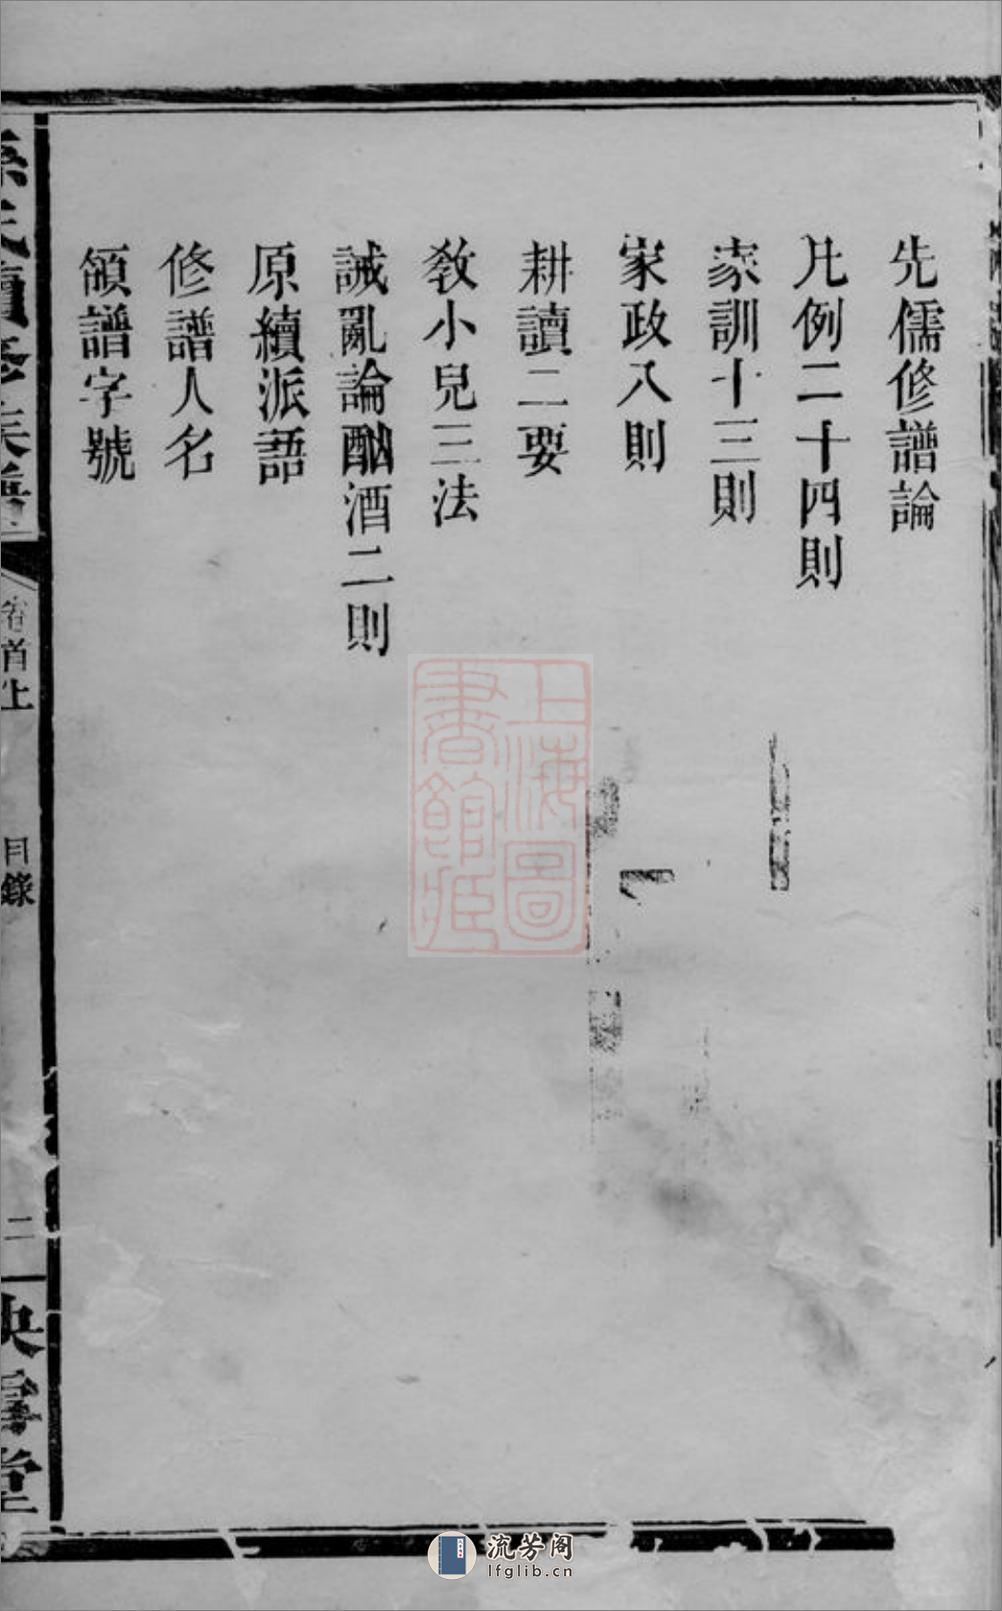 先儒修譜論
凡例二十四則
家訓十三則
家政八則
耕讀二要
教小兒三法
誡亂論酗酒二則
原續派語
修譜人名
領譜字號
孫氏續修族譜
卷首上
目錄
二
映雪堂
上海圖
書館藏
流芳阁
lfglib.cn